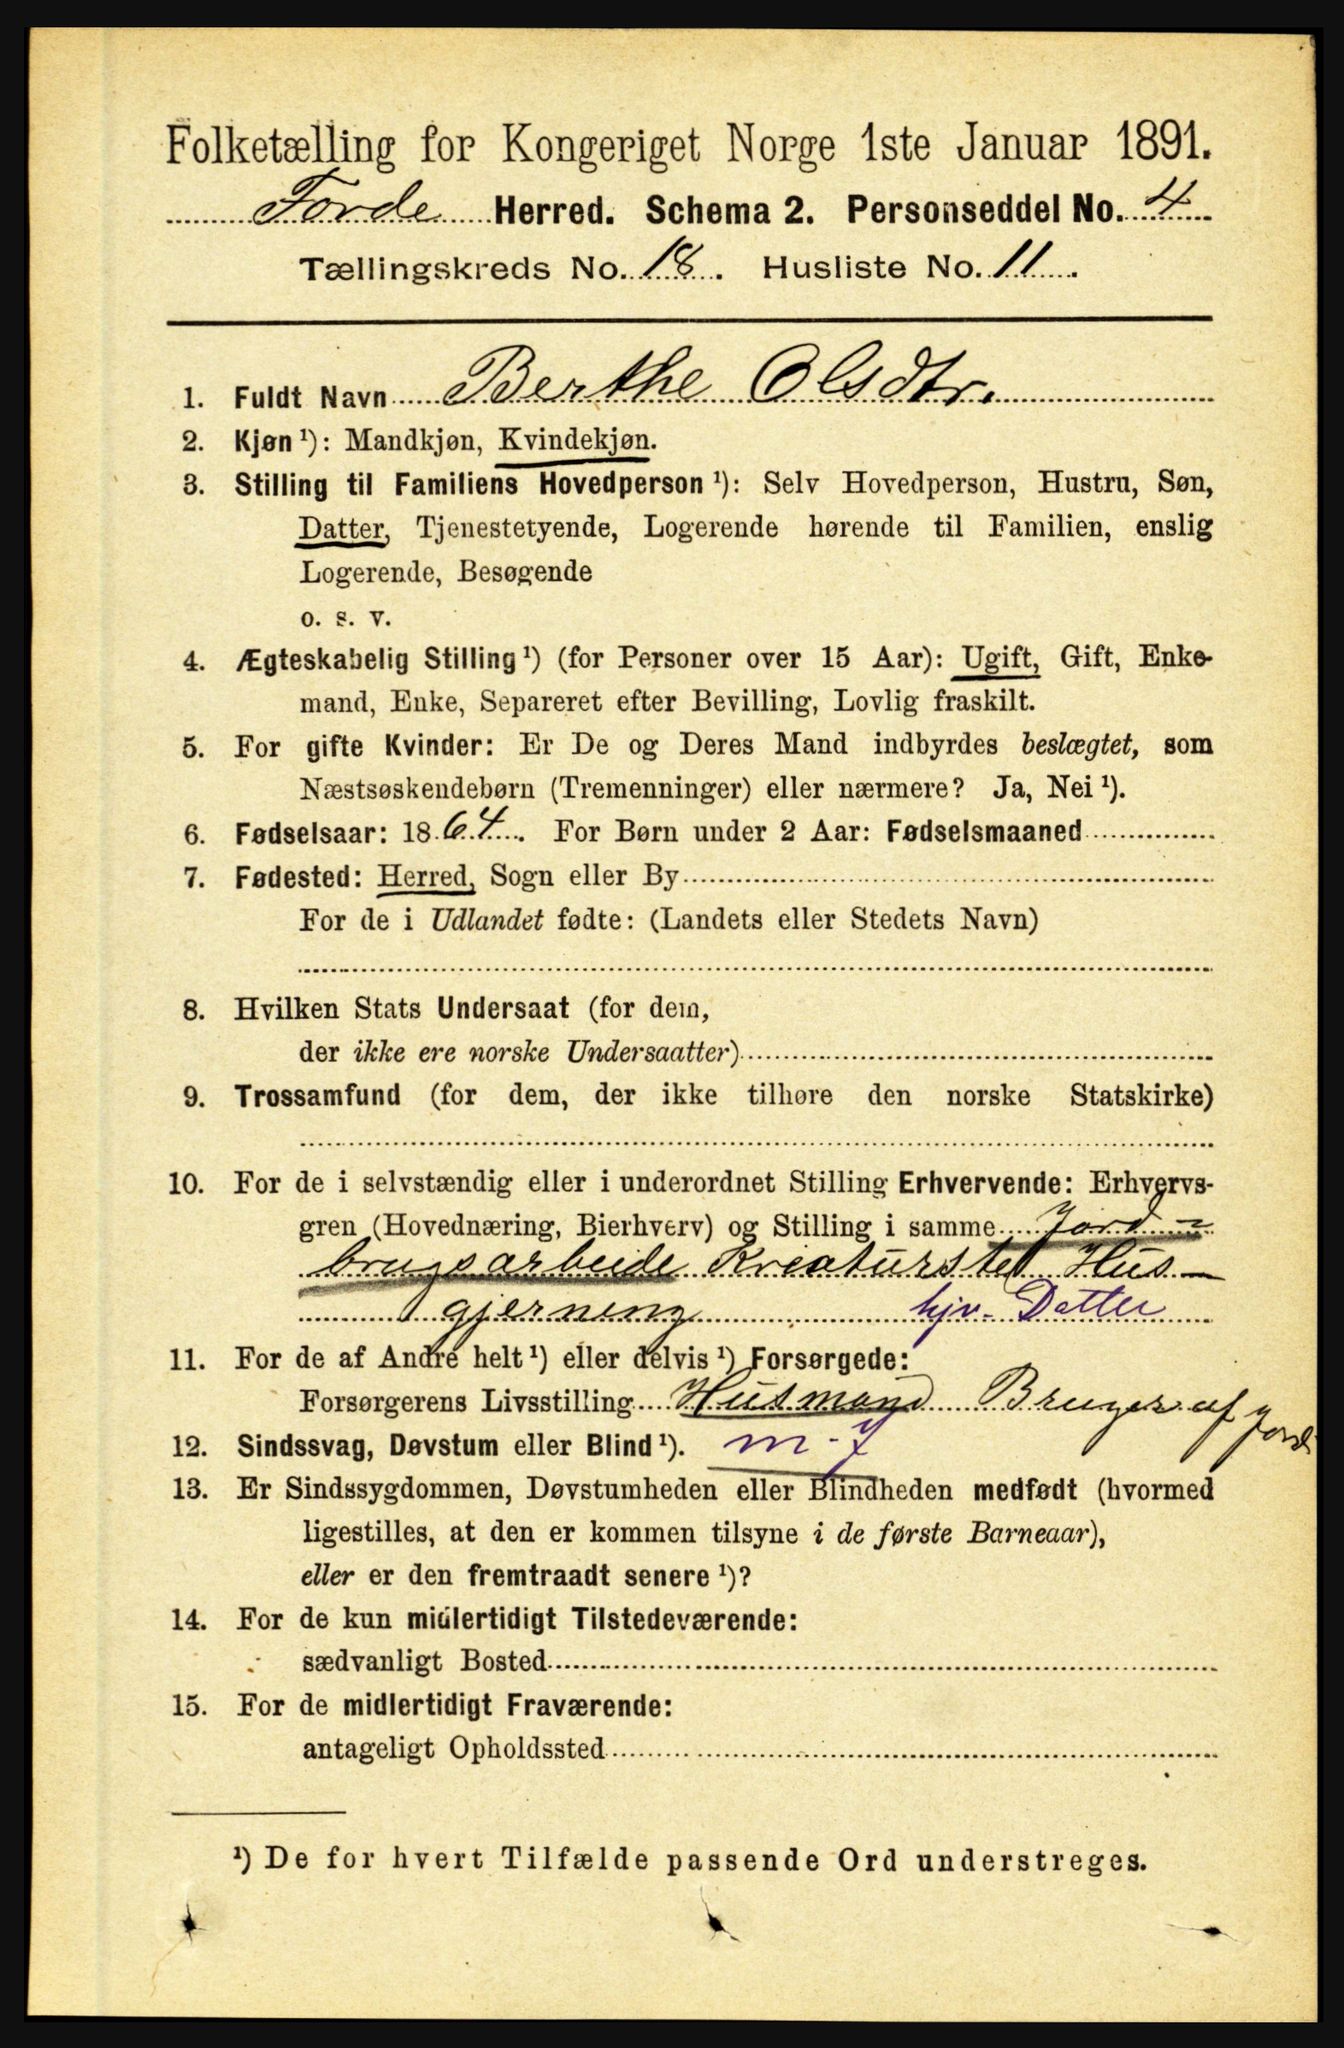 Folketælling for Kongeriget Norge 1ste Januar 1891.
Førde Herred. Schema 2. Personseddel No. 4
Tællingskreds No. 18. Husliste No. 11.
1. Fuldt Navn Berthe Olsdtr.
2. Kjøn ¹): Mandkjøn, Kvindekjøn.
3. Stilling til Familiens Hovedperson ¹): Selv Hovedperson, Hustru, Søn,
Datter, Tjenestetyende, Logerende hørende til Familien, enslig
Logerende, Besøgende
o. s. v.
4. Ægteskabelig Stilling ¹) (for Personer over 15 Aar): Ugift, Gift, Enke-
mand, Enke, Separeret efter Bevilling, Lovlig fraskilt.
5. For gifte Kvinder: Er De og Deres Mand indbyrdes beslægtet, som
Næstsøskendebørn (Tremenninger) eller nærmere? Ja, Nei ¹).
6. Fødselsaar: 1864. For Børn under 2 Aar: Fødselsmaaned
7. Fødested: Herred, Sogn eller By
For de i Udlandet fødte: (Landets eller Stedets Navn)
8. Hvilken Stats Undersaat (for dem,
der ikke ere norske Undersaatter)
9. Trossamfund (for dem, der ikke tilhøre den norske Statskirke)
10. For de i selvstændig eller i underordnet Stilling Erhvervende: Erhvervs-
gren (Hovednæring, Bierhverv) og Stilling i samme Jord-
brugsarbeide Kreaturstel Hus-
gjerning hjv. Datter
11. For de af Andre helt ¹) eller delvis ¹) Forsørgede:
Forsørgerens Livsstilling Husmand Bruger af Jord
12. Sindssvag, Døvstum eller Blind ¹). m. J
13. Er Sindssygdommen, Døvstumheden eller Blindheden medfødt (hvormed
ligestilles, at den er kommen tilsyne i de første Barneaar),
eller er den fremtraadt senere ¹)?
14. For de kun midlertidigt Tilstedeværende:
sædvanligt Bosted
15. For de midlertidigt Fraværende:
antageligt Opholdssted
¹) De for hvert Tilfælde passende Ord understreges.